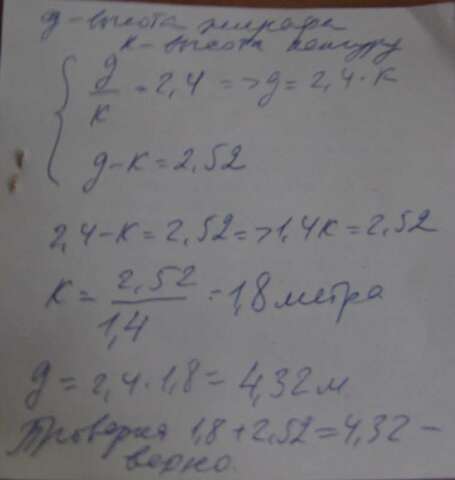 g - высота жирафа
к - высота кенгуру
g/к = 2,4 => g = 2,4 · к
g - к = 2,52
2,4 - к = 2,52 => 1,4к = 2,52
к = 2,52/1,4 = 1,8 метра
g = 2,4 · 1,8 = 4,32 м
Проверка 1,8 + 2,52 = 4,32 -
верно.